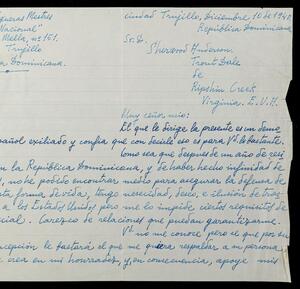 ciudad Trujillo, Diciembre 10 de 194
República Dominicana
queras Mestres
Nacional"
Mella, nº 151.
Trujillo
a Dominicana.
Sr. D.
Sherwood Anderson.
Trout Dale
de
Ripshin Creek
Virginia. E.U.A.
Muy señor mío:
El que le dirige la presente es un demo
pañol exiliado y confía que con decirle eso es para Vd. lo bastante.
Como sea que después de un año de resi
n la República Dominicana, y de haber hecho infinidad de
, no he podido encontrar medio para asegurar la defensa de
esta forma, de vida, tengo necesidad, deseo, e ilusión de tras
a los Estados Unidos pero me lo impide ciertos requisitos de
cial. Carezco de relaciones que puedan garantizarme.
Vd. no me conoce pero el que por su
concepción le bastará el que me quiera respaldar a mi persona
crea en mi honradez y, en consecuencia, apoye mis